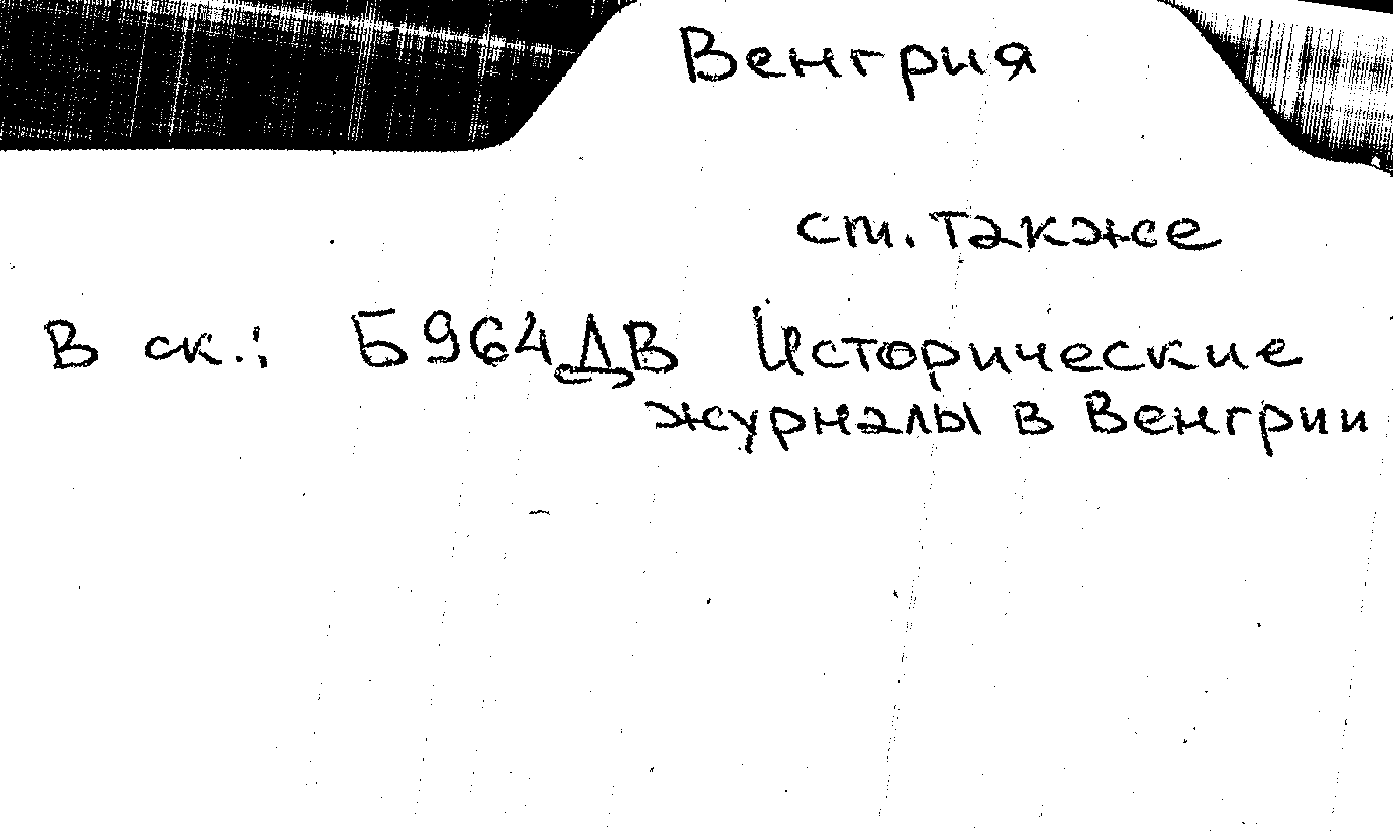 Венгрия
см. также
В ск.: Б964ДВ Исторические
журналы в Венгрии